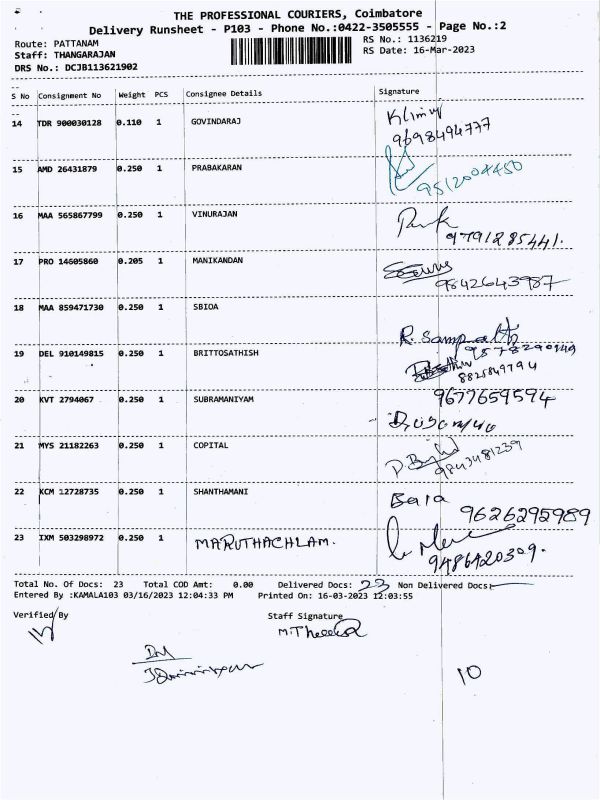 THE PROFESSIONAL COURIERS, Coimbatore
Delivery Runsheet - P103 - Phone No.:0422-3505555 - Page No.:2
Route: PATTANAM
RS No.: 1136219
Staff: THANGARAJAN
RS Date: 16-Mar-2023
DRS No.: DCJB113621902
S No Consignment No Weight PCS Consignee Details Signature
14 TDR 900030128 0.110 1 GOVINDARAJ
9698494777
15 AMD 26431879 0.250 1 PRABAKARAN
9512004450
16 MAA 565867799 0.250 1 VINURAJAN
9791285441.
17 PRO 14605860 0.205 1 MANIKANDAN
9842643987
18 MAA 859471730 0.250 1 SBIOA
R. Sampath
9578290149
19 DEL 910149815 0.250 1 BRITTOSATHISH
8825849794
20 KVT 2794067 0.250 1 SUBRAMANIYAM 9677659594
21 MYS 21182263 0.250 1 COPITAL
9843481239
22 KCM 12728735 0.250 1 SHANTHAMANI Bala
9626295989
23 IXM 503298972 0.250 1 MARUTHACHLAM.
9486420309.
Total No. Of Docs: 23 Total COD Amt: 0.00 Delivered Docs: 23 Non Delivered Docs:
Entered By :KAMALA103 03/16/2023 12:04:33 PM Printed On: 16-03-2023 12:03:55
Verified By Staff Signature
10